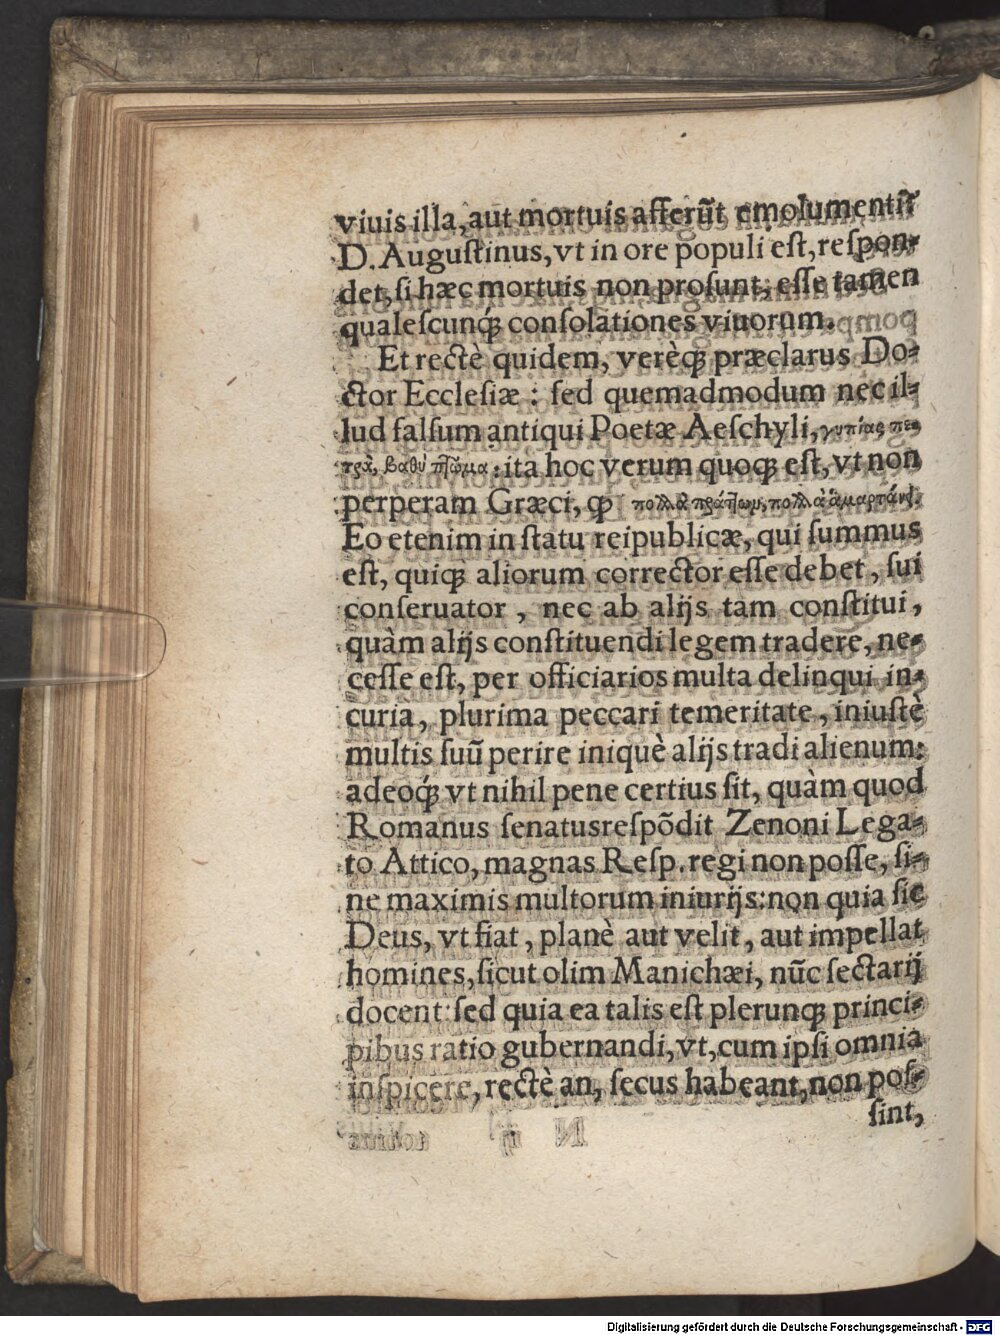 viuis illa, aut mortuis afferūt emolumenti?
D. Augustinus, vt in ore populi est, respon-
det, si hæc mortuis non prosunt, esse tamen
qualescunq́; consolationes viuorum.
Et rectè quidem, verèq; præclarus Do-
ctor Ecclesiæ: sed quemadmodum nec il-
lud falsum antiqui Poetæ Aeschyli, γυπίας πε-
τρᾶ, βαθὺ πτῶμα: ita hoc verum quoq; est, vt non
perperam Græci, ꝙ πολλὰ πράττων, πολλὰ ἁμαρτάνει.
Eo etenim in statu reipublicæ, qui summus
est, quiq; aliorum corrector esse debet, sui
conseruator, nec ab alijs tam constitui,
quàm alijs constituendi legem tradere, ne-
cesse est, per officiarios multa delinqui in-
curia, plurima peccari temeritate, iniustè
multis suū perire iniquè alijs tradi alienum:
adeoq́; vt nihil pene certius sit, quàm quod
Romanus senatus respōdit Zenoni Lega-
to Attico, magnas Resp. regi non posse, si-
ne maximis multorum iniurijs: non quia sic
Deus, vt fiat, planè aut velit, aut impellat
homines, sicut olim Manichæi, nūc sectarij
docent: sed quia ea talis est plerunq; princi-
pibus ratio gubernandi, vt, cum ipsi omnia
inspicere, rectè an, secus habeant, non pos-
sint,
Digitalisierung gefördert durch die Deutsche Forschungsgemeinschaft - DFG